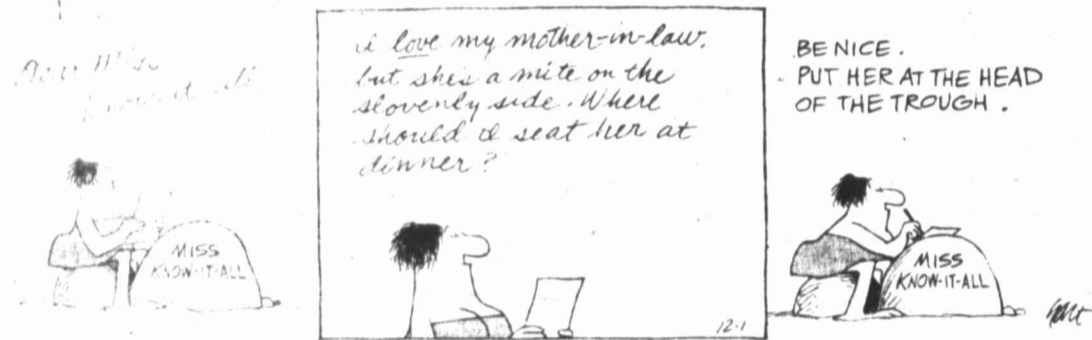 Dear Miss
Know-it-all
MISS
KNOW-IT-ALL
i love my mother-in-law,
but she's a mite on the
slovenly side. Where
should i seat her at
dinner?
12-1
BE NICE.
PUT HER AT THE HEAD
OF THE TROUGH.
MISS
KNOW-IT-ALL